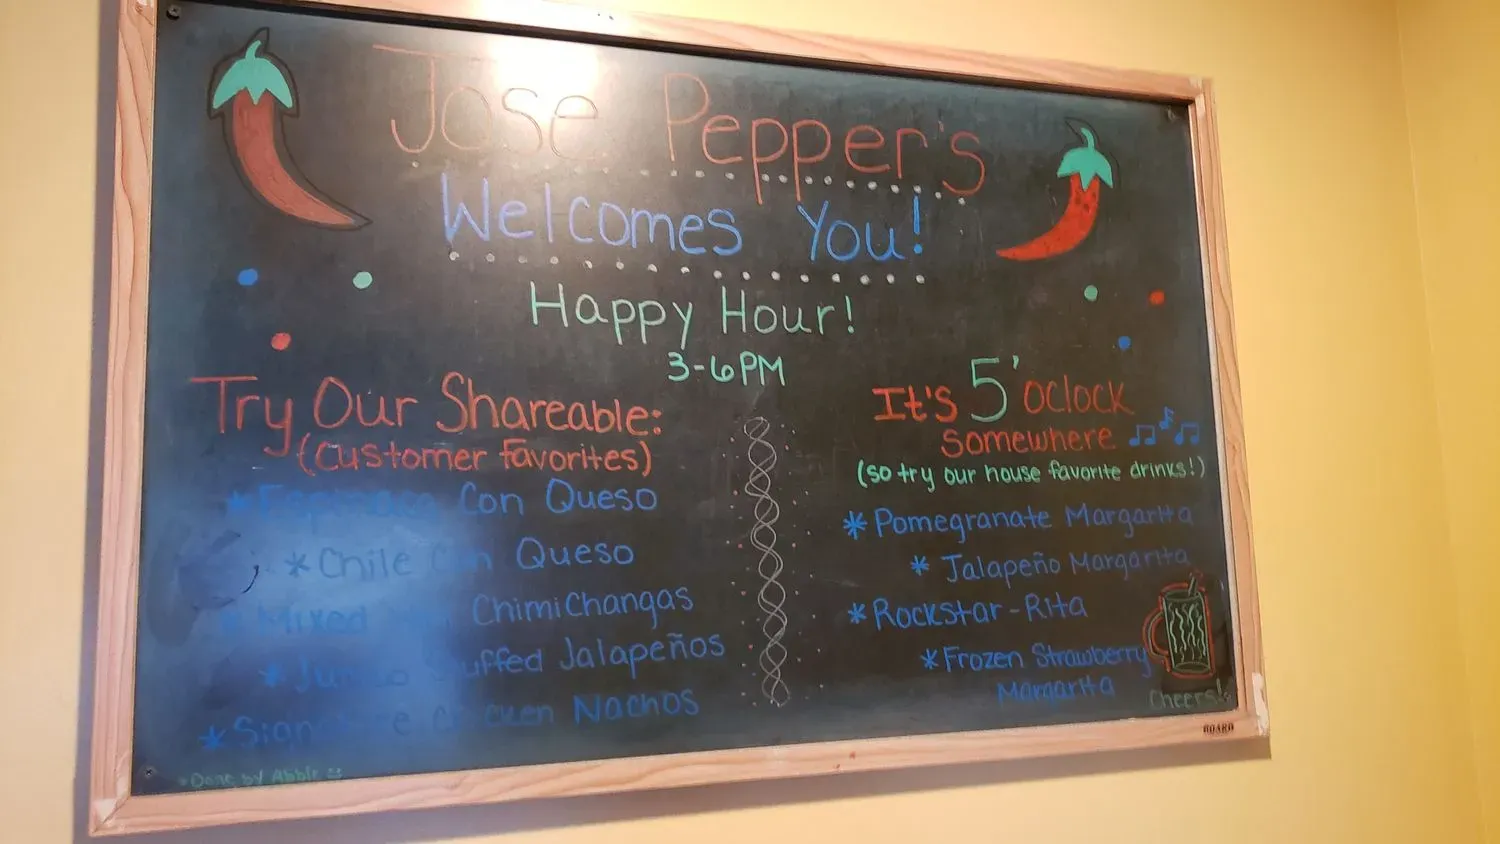 Jose Pepper's
Welcomes You!
Happy Hour!
3-6PM
Try Our Shareable:
(Customer Favorites)
* Espinaca Con Queso
* Chile Con Queso
Mixed ChimiChangas
* Jumbo Stuffed Jalapeños
* Signature Chicken Nachos
*Done by Abbie
It's 5'oclock
Somewhere
(so try our house favorite drinks!)
* Pomegranate Margarita
* Jalapeño Margarita
* Rockstar-Rita
* Frozen Strawberry
Margarita
Cheers!
BOARD